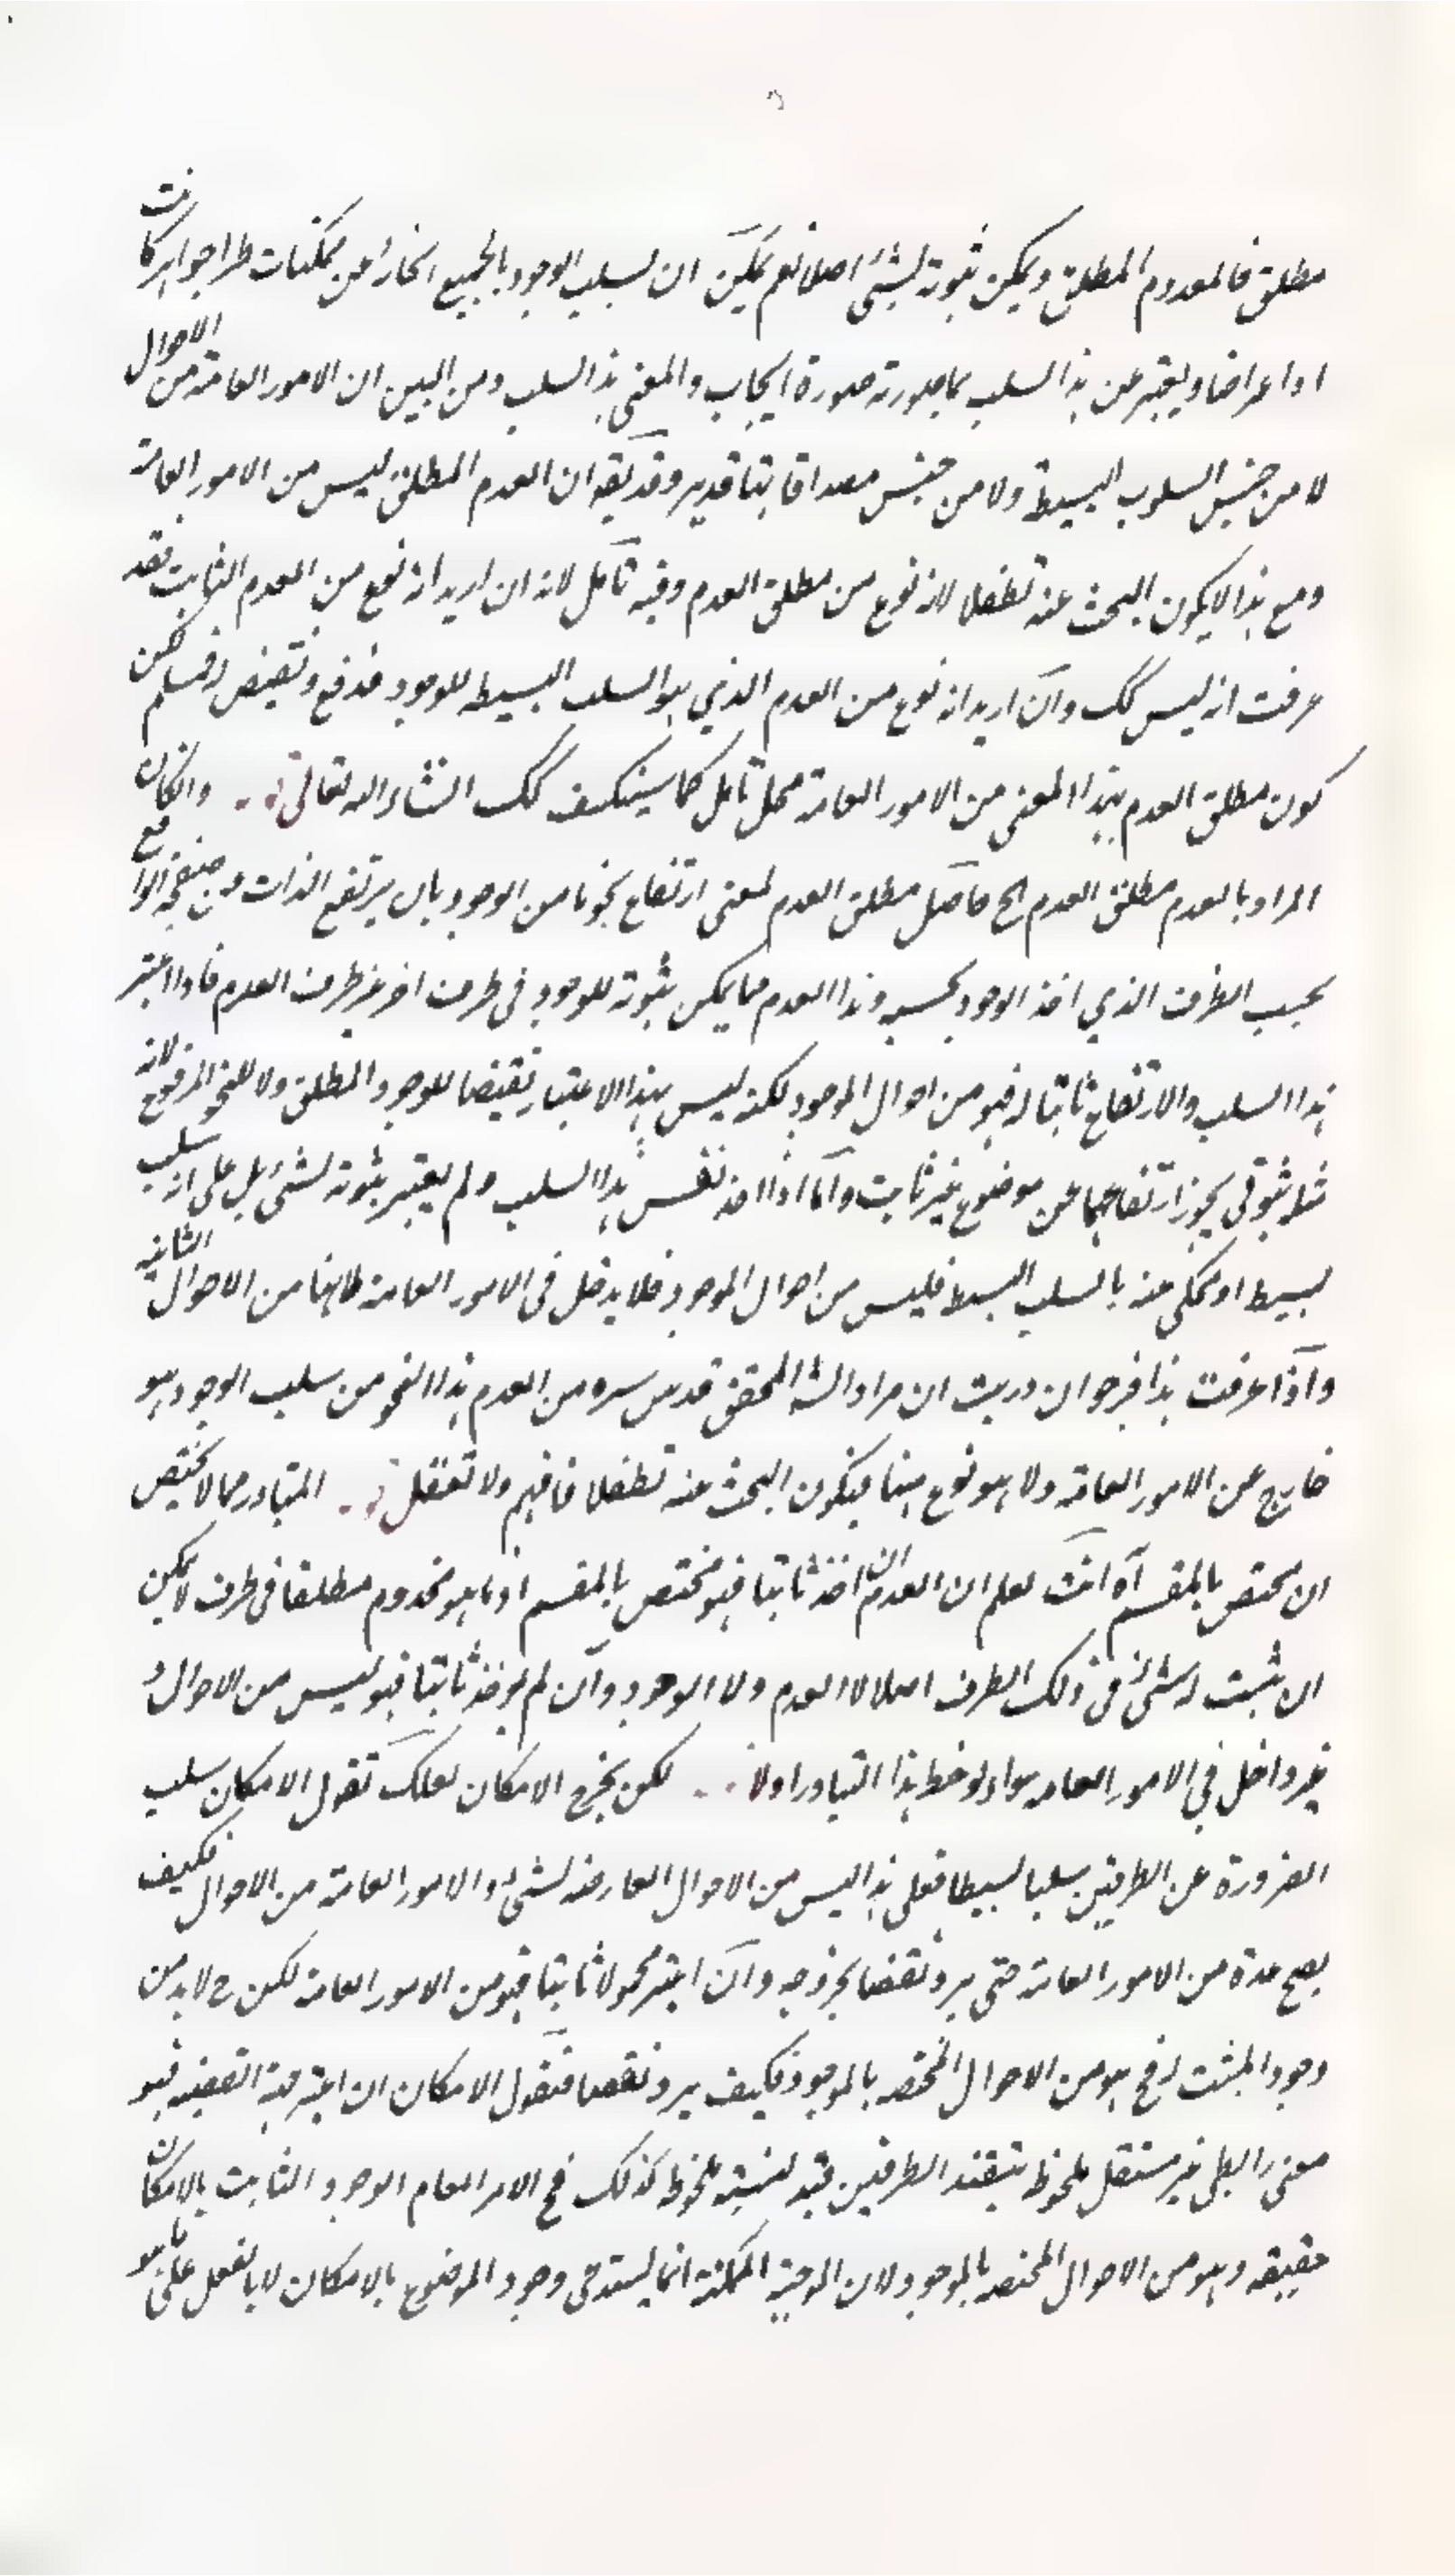 مطلق فالمعدوم المطلق ويمكن ثبوته لشئ اصلا نعم يمكن ان لسلب الوجود بالجميع انحائه عن ممكنات طرا جواهر كانت
او اعراضا ويعبر عن هذا السلب بما صورته صورة ايجاب والمعنى هذا السلب ومن البين ان الامور العامة من الاحوال
لا من جنس السلوب البسيطة ولا من جنس مصداقا بتا قدير وقد يقه ان العدم المطلق ليس من الامور العامة
ومع هذا لا يكون البحث عنه تطفلا لانه نوع من مطلق العدم وفيه تامل لانه ان اريد انه نوع من العدم الثابت فقد
عرفت انه ليس كك وان اريد انه نوع من العدم الذي هو السلب البسيط للوجود فدفع ونقيض له فمسلم لكن
كون مطلق العدم بهذا المعنى من الامور العامة محل تامل كما سينكشف كك انشاء الله تعالى والكان
المراد بالعدم مطلق العدم الخ حاصل مطلق العدم لمعنى ارتفاع نحو ما من الوجود بان يرتفع الذات من صفحة الواقع
بحسب الظرف الذي اخذ الوجود بحسبه وهذا العدم مما يمكن ثبوته للوجود في ظرف اخر غير ظرف العدم فاذا اعتبر
هذا السلب والارتفاع ثابتا له فهو من احوال الموجود لكنه ليس بهذا الاعتبار نقيضا للوجود المطلق ولا للنحو المرفوع لانه
ثبوتي يجوز ارتفاعهما عن موضوع غير ثابت واما اذا اخذ نفس هذا السلب ولم يعتبر ثبوته لشئ بل على انه سلب
بسيط او يحكى عنه بالسلب البسيط فليس من احوال الموجود فلا يدخل في الامور العامة فانها من الاحوال الثابتة
واذا عرفت هذا فبرجوان دريت ان مراد الشه المحقق قدس سره من العدم هذا النحو من سلب الوجود هو
خارج عن الامور العامة ولا هو نوع منها فيكون البحث عنه تطفلا فافهم ولا تغفل المتبادر مما لا يختص
ان يختص بالمقسم آه انت لعلم ان العدم ان اخذ ثابتا فهو مختص بالمقسم اذ ما هو معدوم مطلقا في ظرف لا يمكن
ان يثبت له شئ في ذلك الظرف اصلا لا العدم ولا الوجود وان لم يوخذ ثابتا فهو ليس من الاحوال و
غير داخل في الامور العامه سواء لوحظ هذا التبادر اولا لكن يخرج الامكان لعلك تقول الامكان سلب
الضرورة عن الطرفين سلبا بسيطا فعلى هذا ليس من الاحوال العارضه لشئ والامور العامة من الاحوال فكيف
يصح عده من الامور العامة حتى يرد نقضا بخروجه وان اعتبر محمولا ثابتا فهو من الامور العامة لكن ح لا بد من
وجود المثبت له فح هو من الاحوال المختصه بالموجود فكيف يرد نقضا فنقول الامكان ان اعتبر جهة القضيه فهو
معنى رابطي غير مستقل ملحوظ الطرفين قيد لنسبة ملحوظ كذلك فح الامر العام الوجود الثابت بالامكان
حقيقه وهو من الاحوال المختصه بالموجود لان الموجبة الممكنة انما يستدعى وجود الموضوع بالامكان لا بالفعل على ما هو